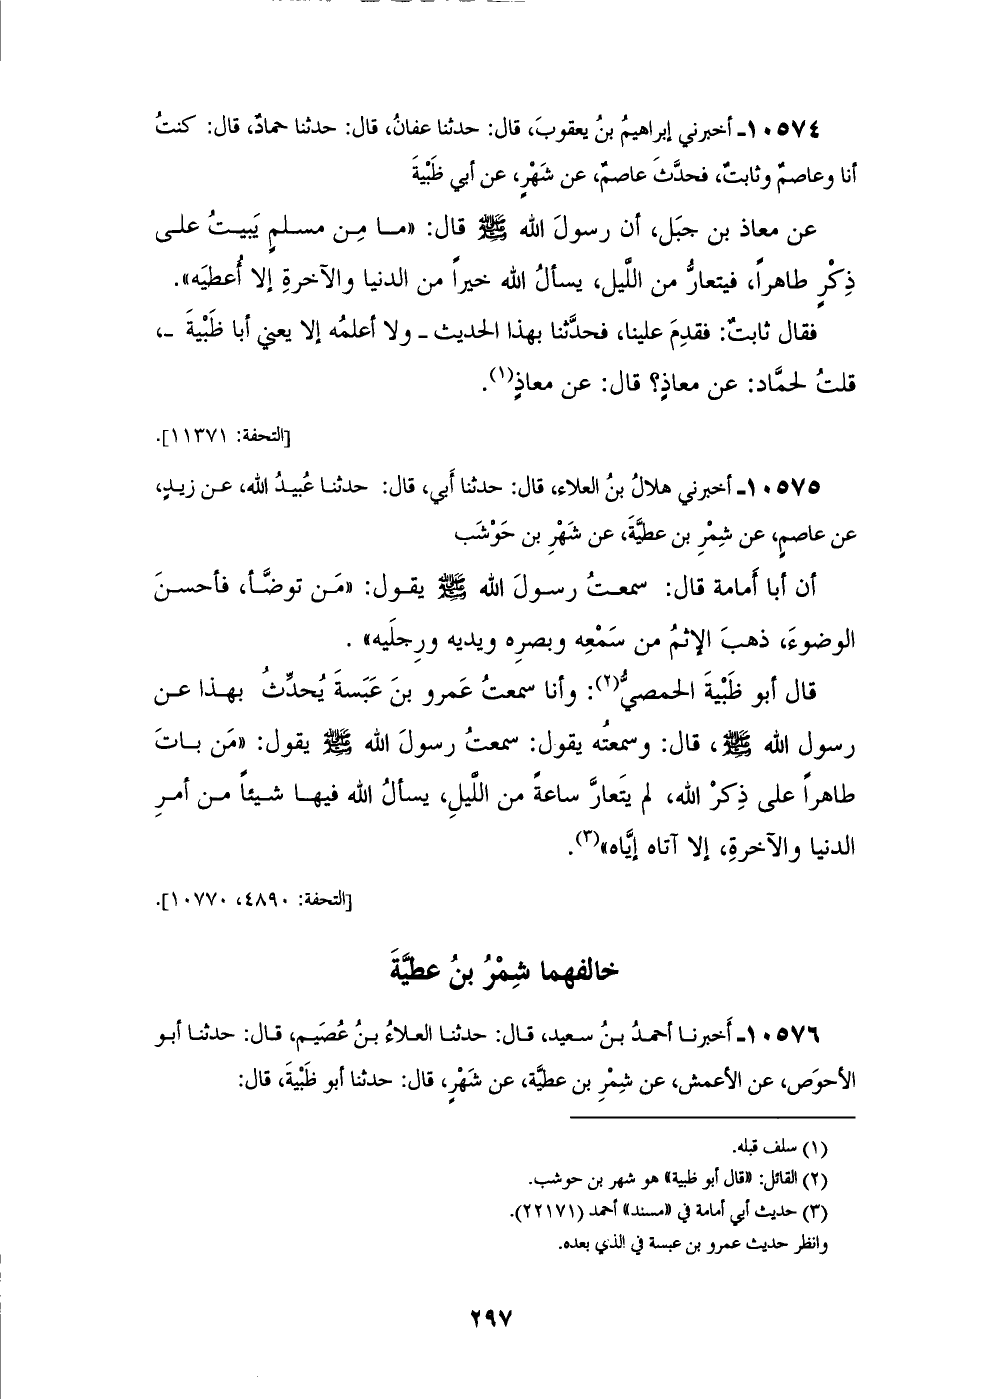 ١٠٥٧٤ـ أخبرني إبراهيمُ بنُ يعقوبَ، قال: حدثنا عفانُ، قال: حدثنا حمادٌ، قال: كنتُ
أنا وعاصمٌ وثابتٌ، فحدَّثَ عاصمٌ، عن شَهْرٍ، عن أبي ظَبْيةَ
عن معاذ بن جبَل، أن رسولَ الله ﷺ قال: «مـا مِـن مسلمٍ يَبيتُ علـى
ذِكْرٍ طاهراً، فيتعارُّ من اللَّيل، يسألُ الله خيراً من الدنيا والآخرةِ إلا أُعطيَه».
فقال ثابتٌ: فقدِمَ علينا، فحدَّثنا بهذا الحديث ـ ولا أعلمُه إلا يعني أبا ظَبْيةَ ـ،
قلتُ لحمَّاد: عن معاذٍ؟ قال: عن معاذٍ(١).
[التحفة: ١١٣٧١].
١٠٥٧٥ـ أخبرني هلالُ بنُ العلاء، قال: حدثنا أَبي، قال: حدثنـا عُبيـدُ الله، عـن زيـدٍ،
عن عاصمٍ، عن شِمْرِ بن عطيَّةَ، عن شَهْرِ بن حَوْشَب
أن أبا أُمامة قال: سمعـتُ رسـولَ الله ﷺ يقـول: «مَـن توضَّـأ، فأحسـنَ
الوضوءَ، ذهبَ الإثمُ من سَمْعِه وبصرِه ويديه ورِجلَيه» .
قال أبو ظَبْيةَ الحمصيُّ(٢): وأنا سمعتُ عَمرو بنَ عَبَسةَ يُحدِّثُ بهـذا عـن
رسول الله ﷺ، قال: وسمعتُه يقول: سمعتُ رسولَ الله ﷺ يقول: «مَن بـاتَ
طاهراً على ذِكرْ الله، لم يتَعارَّ ساعةً من اللَّيلِ، يسألُ الله فيهـا شـيئاً مـن أمـرِ
الدنيا والآخرةِ، إلا آتاه إيَّاه»(٣).
[التحفة: ٤٨٩٠، ١٠٧٧٠].
خالفهما شِمْرُ بنُ عطيَّةَ
١٠٥٧٦ـ أَخبرنـا أحمـدُ بـنُ سعيد، قـال: حدثنـا العـلاءُ بـنُ عُصَيـم، قـال: حدثنـا أبـو
الأحوَص، عن الأعمش، عن شِمْرِ بن عطيَّة، عن شَهْرٍ، قال: حدثنا أبو ظَبْيةَ، قال:
(١) سلف قبله.
(٢) القائل: «قال أبو ظبية» هو شهر بن حوشب.
(٣) حديث أبي أمامة في «مسند» أحمد (٢٢١٧١).
وانظر حديث عمرو بن عبسة في الذي بعده.
٢٩٧